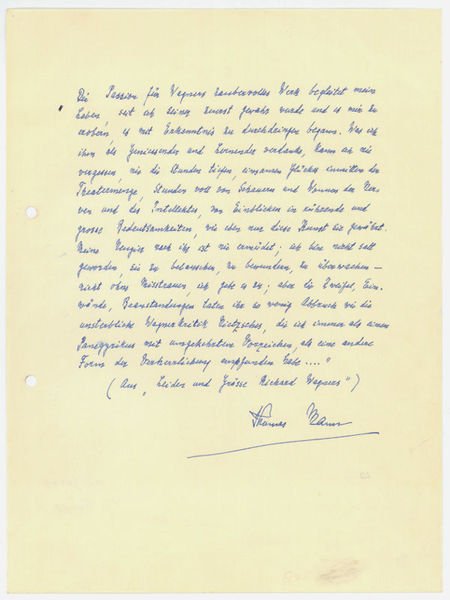 Die Passion für Wagners zaubervolles Werk begleitet mein
Leben, seit ich seiner zuerst gewahr wurde und es mir zu
erobern, es mit Erkenntnis zu durchdringen begann. Was ich
ihm als Geniessender und Lernender verdanke, kann ich nie
vergessen, nie die Stunden tiefen, einsamen Glückes inmitten der
Theatermenge, Stunden voll von Schauern und Wonnen der Ner-
ven und des Intellektes, von Einblicken in rührende und
grosse Bedeutsamkeiten, wie eben nur diese Kunst sie gewährt.
Meine Neugier nach ihr ist nie ermüdet; ich bin nicht satt
geworden, sie zu belauschen, zu bewundern, zu überwachen –
nicht ohne Misstrauen, ich gebe es zu; aber die Zweifel, Ein-
wände, Beanstandungen taten ihr so wenig Abbruch wie die
unsterbliche Wagnerkritik Nietzsches, die ich immer als einen
Panegyrikus mit umgekehrtem Vorzeichen, als eine andere
Form der Verherrlichung empfunden habe ...."
(Aus „Leiden und Grösse Richard Wagners")
Thomas Mann